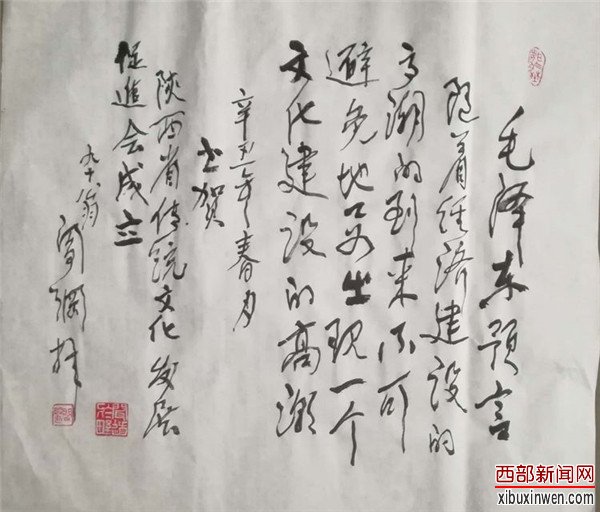 毛泽东预言
随着经济建设的
高潮的到来不可
避免地要出现一个
文化建设的高潮
辛丑年春月
书贺
陕西省传统文化发展
促进会成立
西部新闻网
xibuxinwen.com